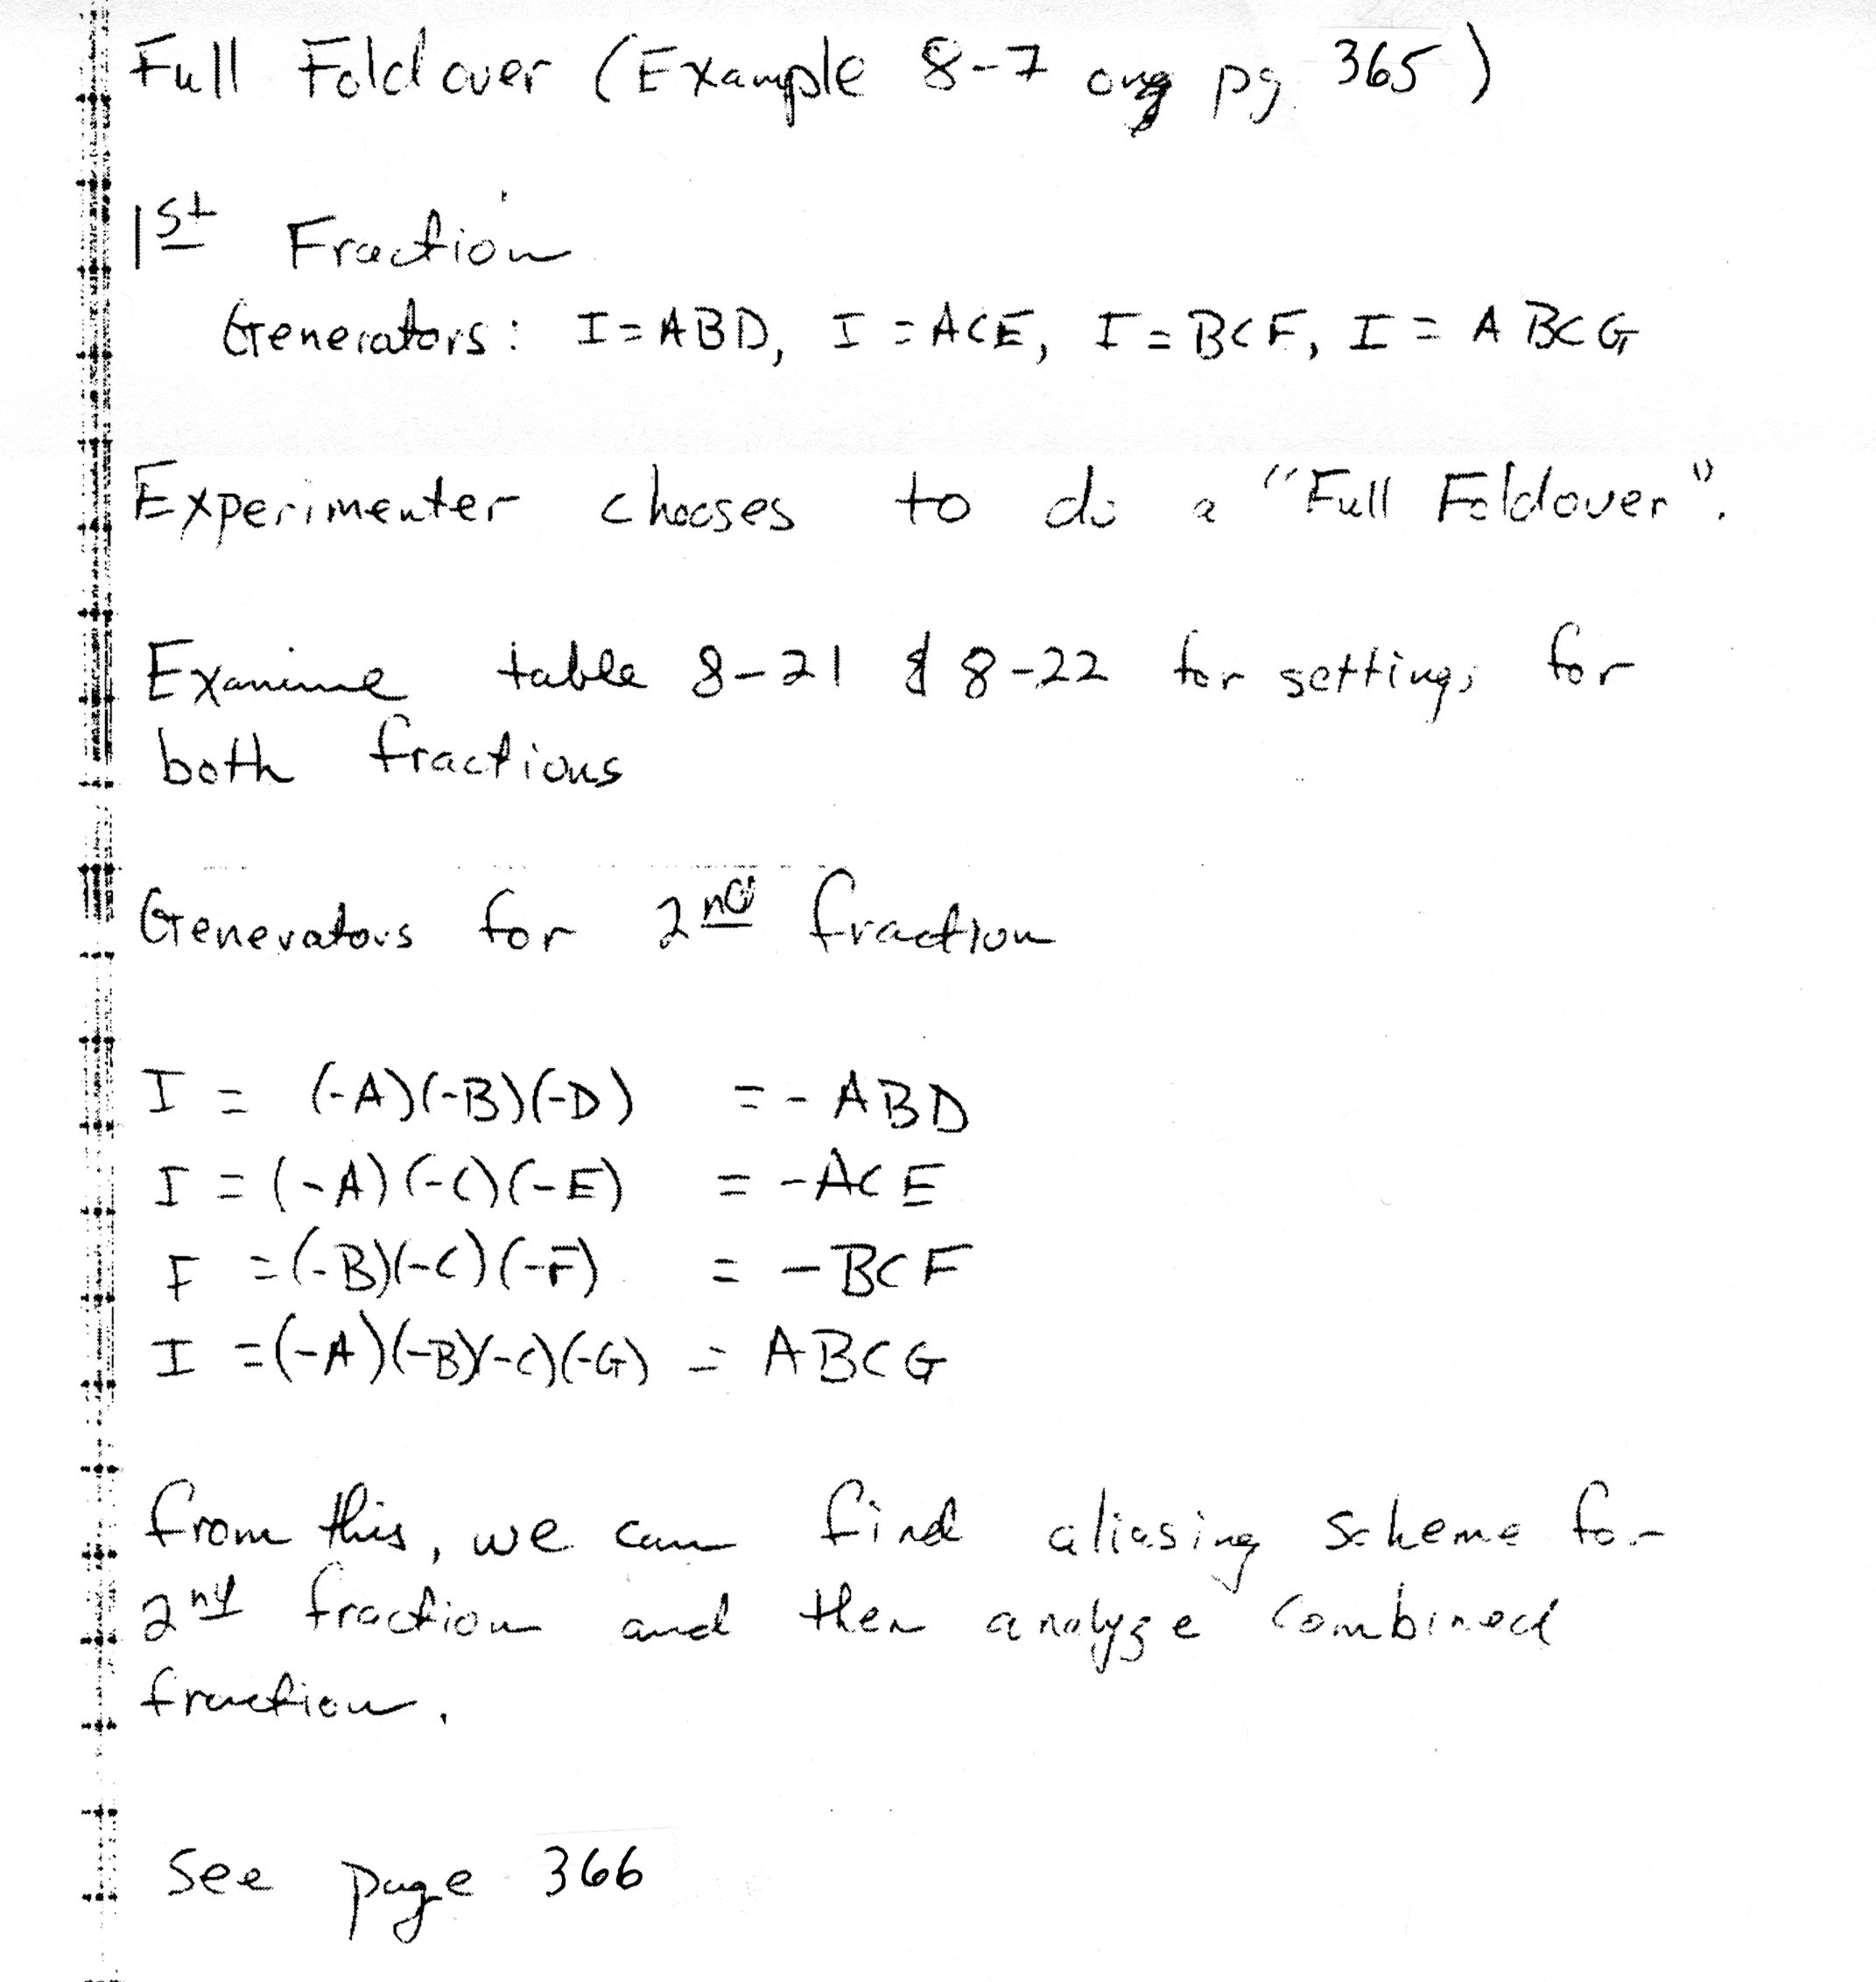 Full Foldover (Example 8-7 on pg 365)
1st Fraction
Generators: I = ABD, I = ACE, I = BCF, I = ABCG
Experimenter chooses to do a "Full Foldover".
Examine table 8-21 & 8-22 for settings for
both fractions
Generators for 2nd fraction
I = (-A)(-B)(-D) = - ABD
I = (-A)(-C)(-E) = -ACE
I = (-B)(-C)(-F) = - BCF
I = (-A)(-B)(-C)(-G) = ABCG
from this, we can find aliasing scheme for
2nd fraction and then analyze combined
fraction.
See page 366